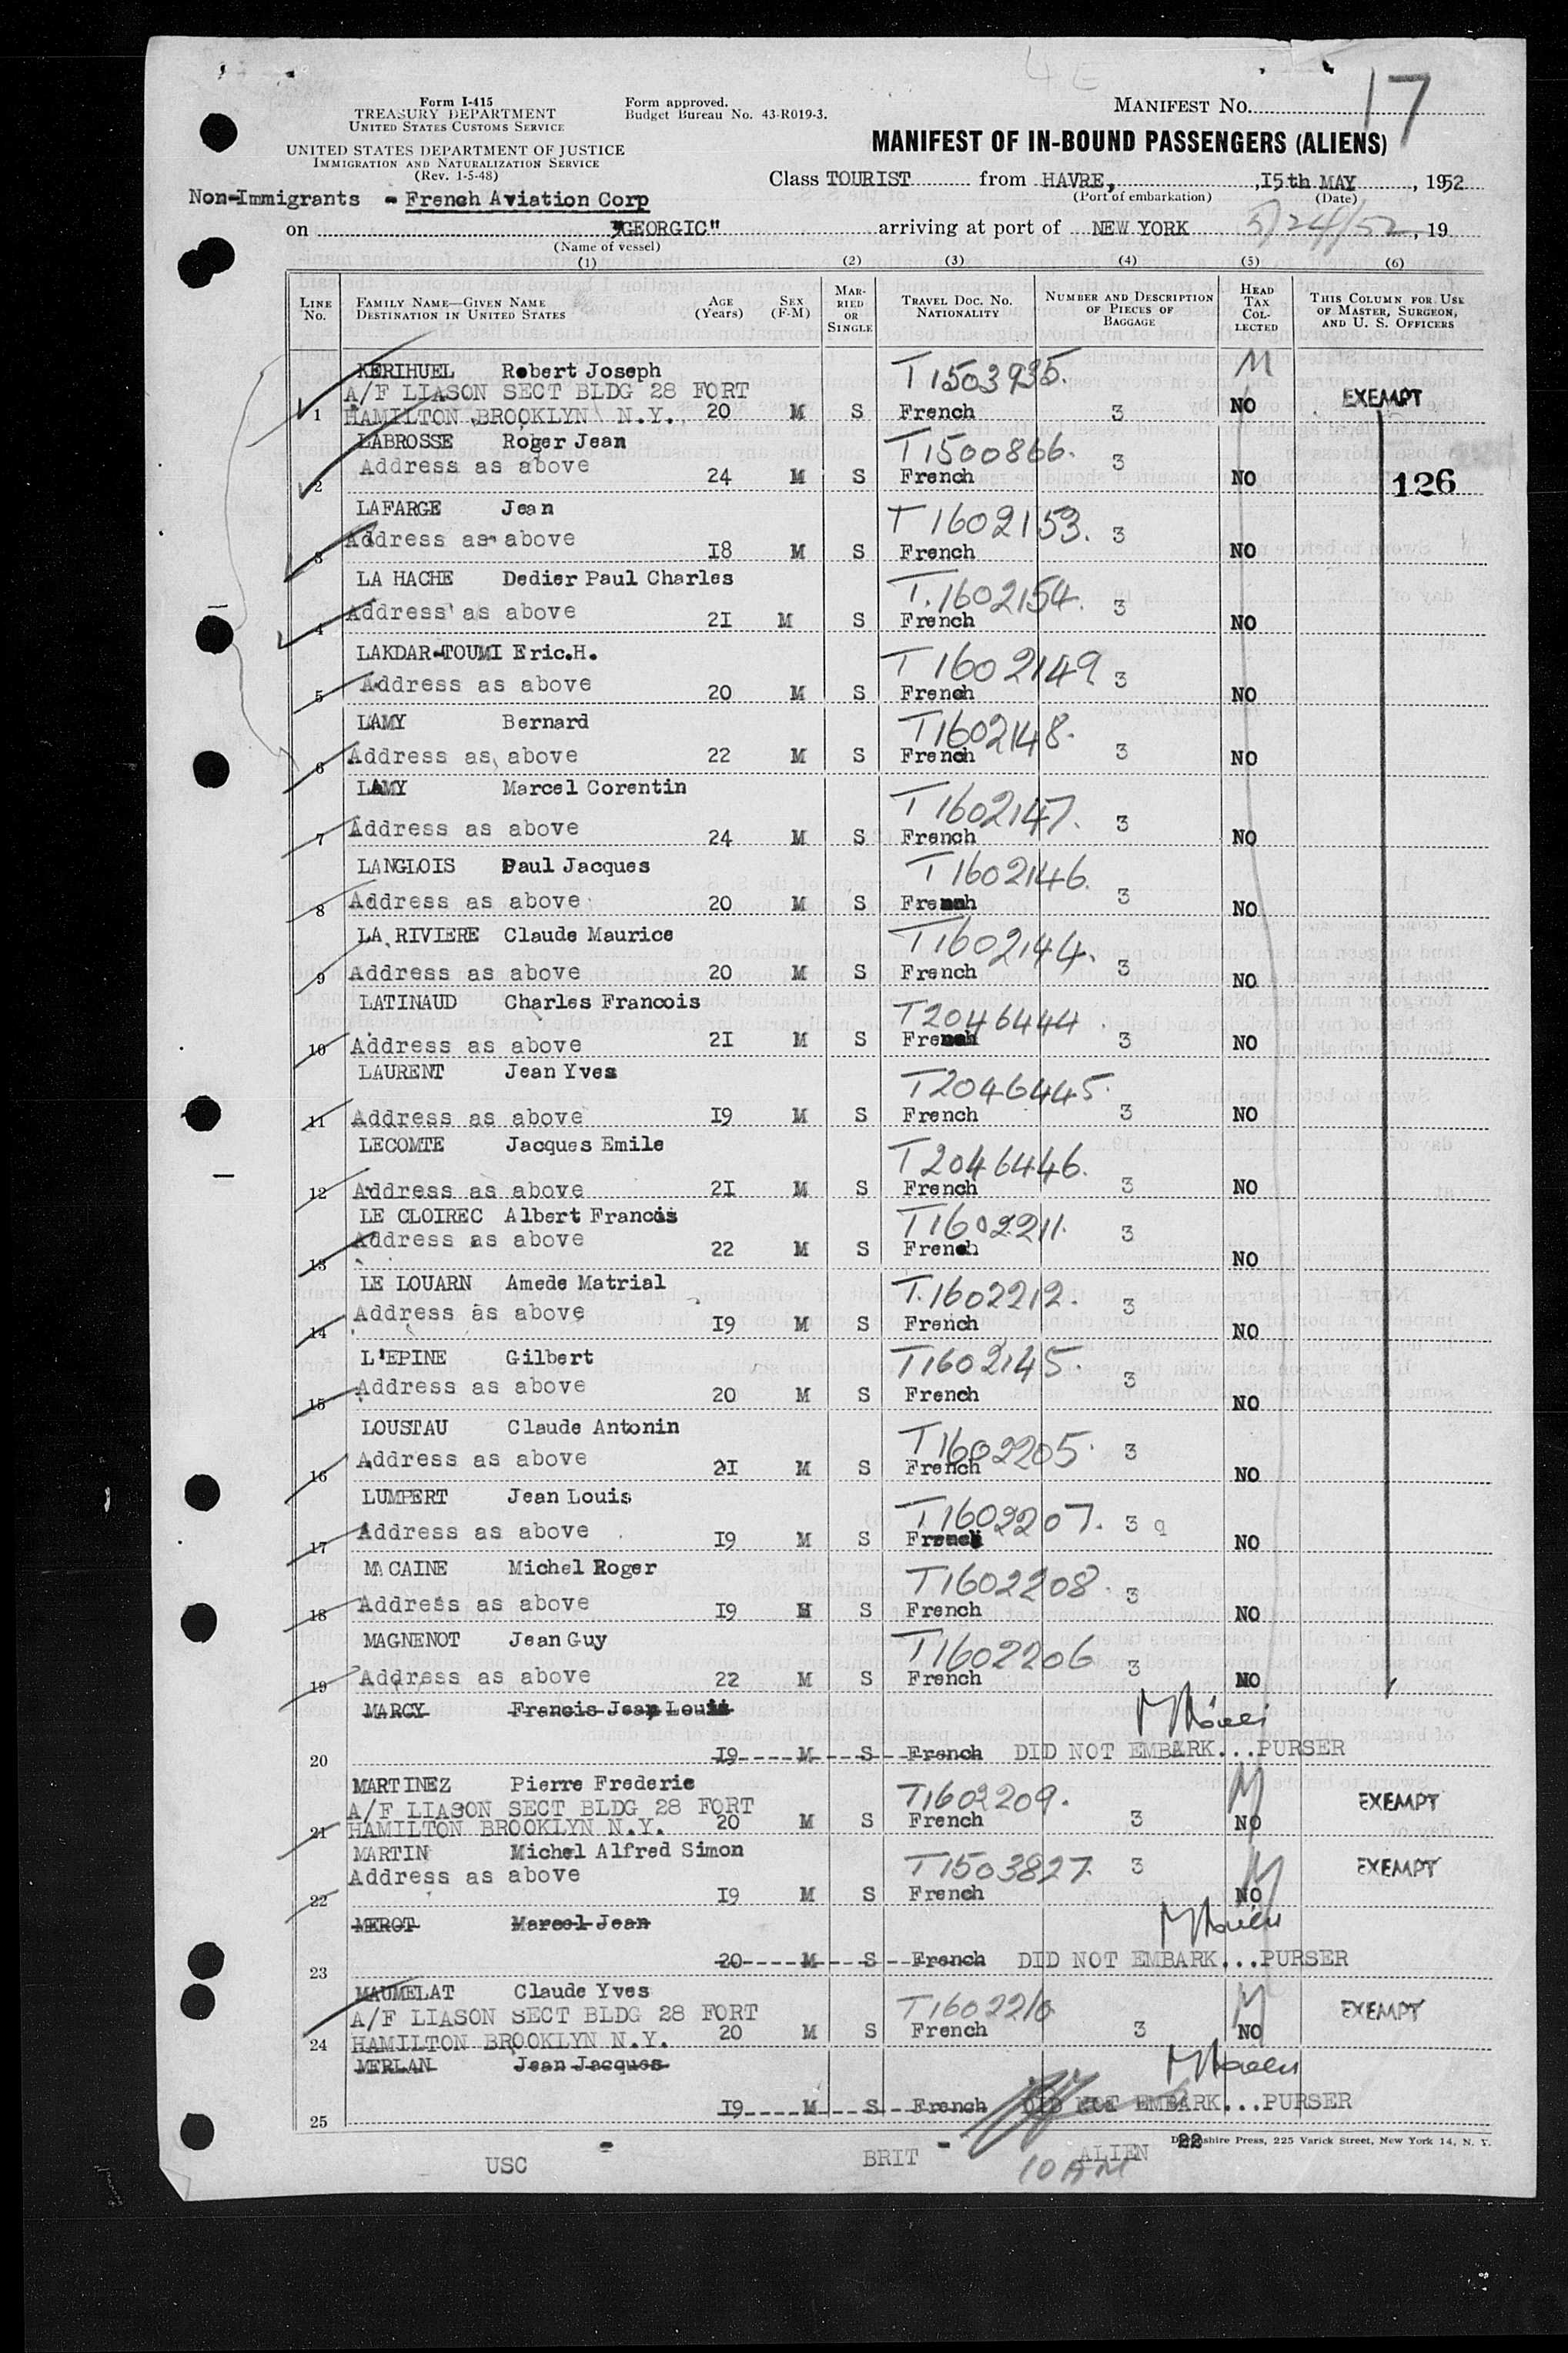 17
Form I-415
TREASURY DEPARTMENT
UNITED STATES CUSTOMS SERVICE
Form approved.
Budget Bureau No. 43-R019-3.
MANIFEST NO.
UNITED STATES DEPARTMENT OF JUSTICE
IMMIGRATION AND NATURALIZATION SERVICE
(Rev. 1-5-48)
MANIFEST OF IN-BOUND PASSENGERS (ALIENS)
Class TOURIST from HAVRE, , I5th MAY , 1952
(Port of embarkation) (Date)
Non-Immigrants - French Aviation Corp
on "GEORGIC" arriving at port of NEW YORK 5/24/52, 19
(Name of vessel)
(1) (2) (3) (4) (5) (6)
LINE NO. FAMILY NAME—GIVEN NAME DESTINATION IN UNITED STATES AGE (Years) SEX (F-M) MARRIED OR SINGLE TRAVEL DOC. NO. NATIONALITY NUMBER AND DESCRIPTION OF PIECES OF BAGGAGE HEAD TAX COLLECTED THIS COLUMN FOR USE OF MASTER, SURGEON, AND U. S. OFFICERS
KERIHUEL Robert Joseph T1503935. M
A/F LIASON SECT BLDG 28 FORT EXEMPT
1 HAMILTON BROOKLYN N.Y. 20 M S French 3 NO
LABROSSE Roger Jean T1500866.
Address as above 3
2 24 M S French NO 126
LAFARGE Jean T1602153.
Address as above 3
3 I8 M S French NO
LA HACHE Dedier Paul Charles T.1602154.
4 Address as above 2I M S French 3 NO
LAKDAR-TOUMI Eric.H. T1602149
5 Address as above 20 M S French 3 NO
LAMY Bernard T1602148.
6 Address as above 22 M S French 3 NO
LAMY Marcel Corentin T1602147.
7 Address as above 24 M S French 3 NO
LANGLOIS Paul Jacques T1602146.
8 Address as above 20 M S French 3 NO
LA RIVIERE Claude Maurice T1602144.
9 Address as above 20 M S French 3 NO
LATINAUD Charles Francois T2046444.
10 Address as above 2I M S French 3 NO
LAURENT Jean Yves T2046445.
11 Address as above I9 M S French 3 NO
LECOMTE Jacques Emile T2046446.
12 Address as above 2I M S French 3 NO
LE CLOIREC Albert Francois T1602211.
13 Address as above 22 M S French 3 NO
LE LOUARN Amede Matrial T.1602212.
14 Address as above I9 M S French 3 NO
L'EPINE Gilbert T1602145.
15 Address as above 20 M S French 3 NO
LOUSTAU Claude Antonin T1602205.
16 Address as above 2I M S French 3 NO
LUMPERT Jean Louis T1602207.
17 Address as above I9 M S French 3 NO
MACAINE Michel Roger T1602208.
18 Address as above I9 M S French 3 NO
MAGNENOT Jean Guy T1602206
19 Address as above 22 M S French 3 NO
MARCY Francis Jean Louis
20 I9 M S French DID NOT EMBARK...PURSER
MARTINEZ Pierre Frederic T1602209. M
A/F LIASON SECT BLDG 28 FORT EXEMPT
21 HAMILTON BROOKLYN N.Y. 20 M S French 3 NO
MARTIN Michel Alfred Simon T1503827. 3 M EXEMPT
Address as above
22 I9 M S French NO
MEROT Marcel Jean
23 20 M S French DID NOT EMBARK...PURSER
MAUMELAT Claude Yves T1602210 M
A/F LIASON SECT BLDG 28 FORT EXEMPT
24 HAMILTON BROOKLYN N.Y. 20 M S French 3 NO
MERLAN Jean Jacques
25 I9 M S French DID NOT EMBARK...PURSER
shire Press, 225 Varick Street, New York 14, N. Y.
USC - BRIT - ALIEN 22
10 AM